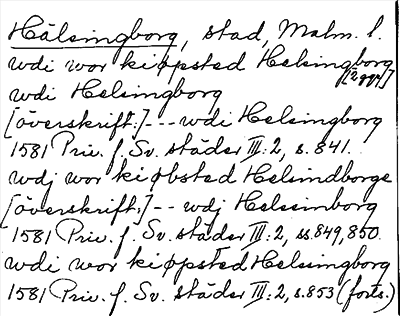 Hälsingborg, stad, Malm. l.
wdi wor kiøpsted Helsingborg
[2 ggr]
wdi Helsingborg
[överskrift:] --- wdi Helsingborg
1581 Priv. f. Sv. städer III: 2, s. 841.
wdj wor kiøbsted Helsindborge
[överskrift:] -- wdj Helsimborg
1581 Priv. f. Sv. städer III: 2, ss. 849, 850.
wdi wor kiøpsted Helsingborg
1581 Priv. f. Sv. städer III: 2, s. 853 (forts.)